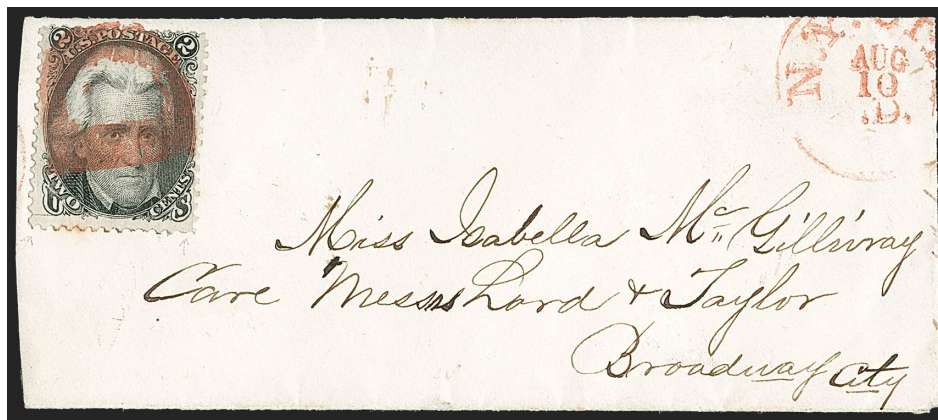 2 U.S. POSTAGE 2
U TWO CENTS S
N.Y. CITY
AUG
10
.D.
Miss Isabella Mc Gillivray
Care Messrs Lord & Taylor
Broadway City